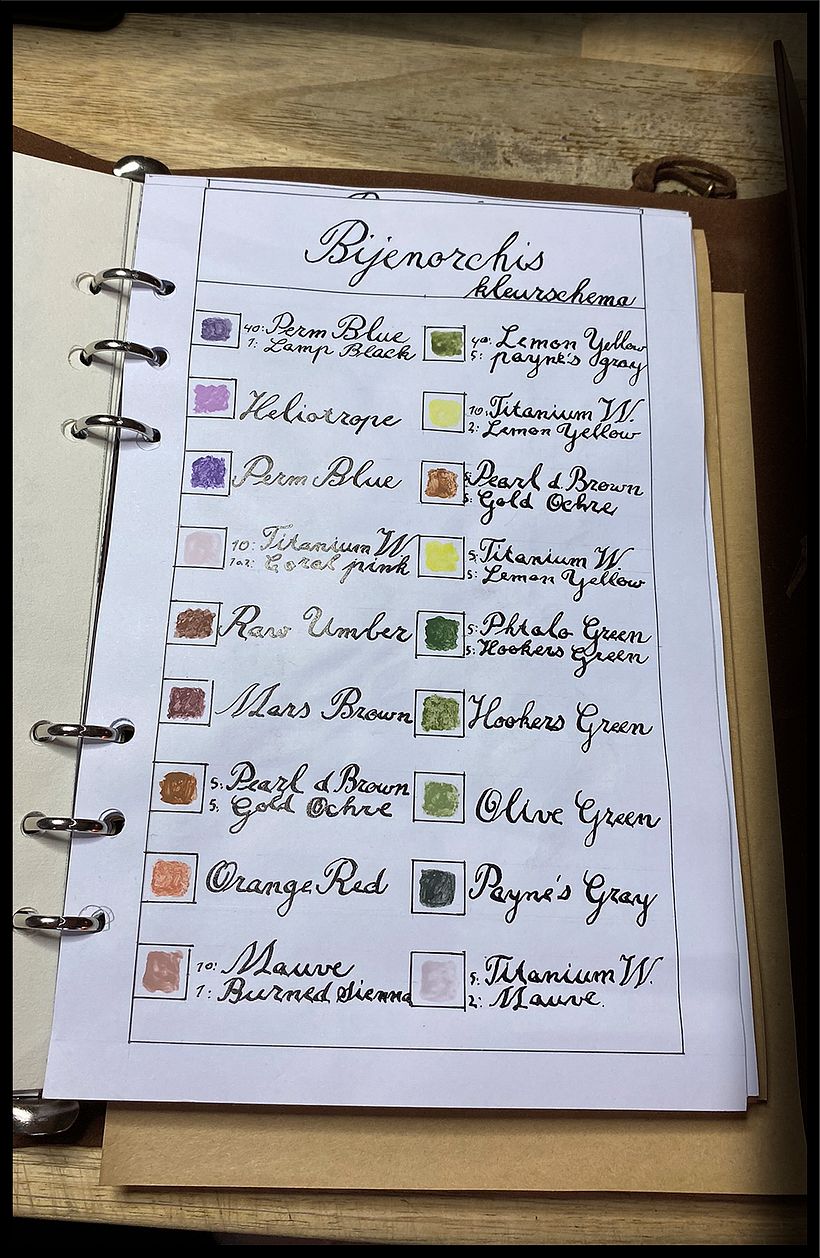 Bijenorchis
kleurschema
40: Perm Blue
1: Lamp Black
Heliotrope
Perm Blue
10: Titanium W.
Coral pink
Raw Umber
Mars Brown
5: Pearl d Brown
5: Gold Ochre
Orange Red
10: Mauve
1: Burned Sienna
40: Lemon Yellow
5: payne's gray
10: Titanium W.
2: Lemon Yellow
5: Pearl d. Brown
5: Gold Ochre
5: Titanium W.
5: Lemon Yellow
5: Phtalo Green
5: Hookers Green
Hookers Green
Olive Green
Payne's Gray
5: Titanium W.
2: Mauve.